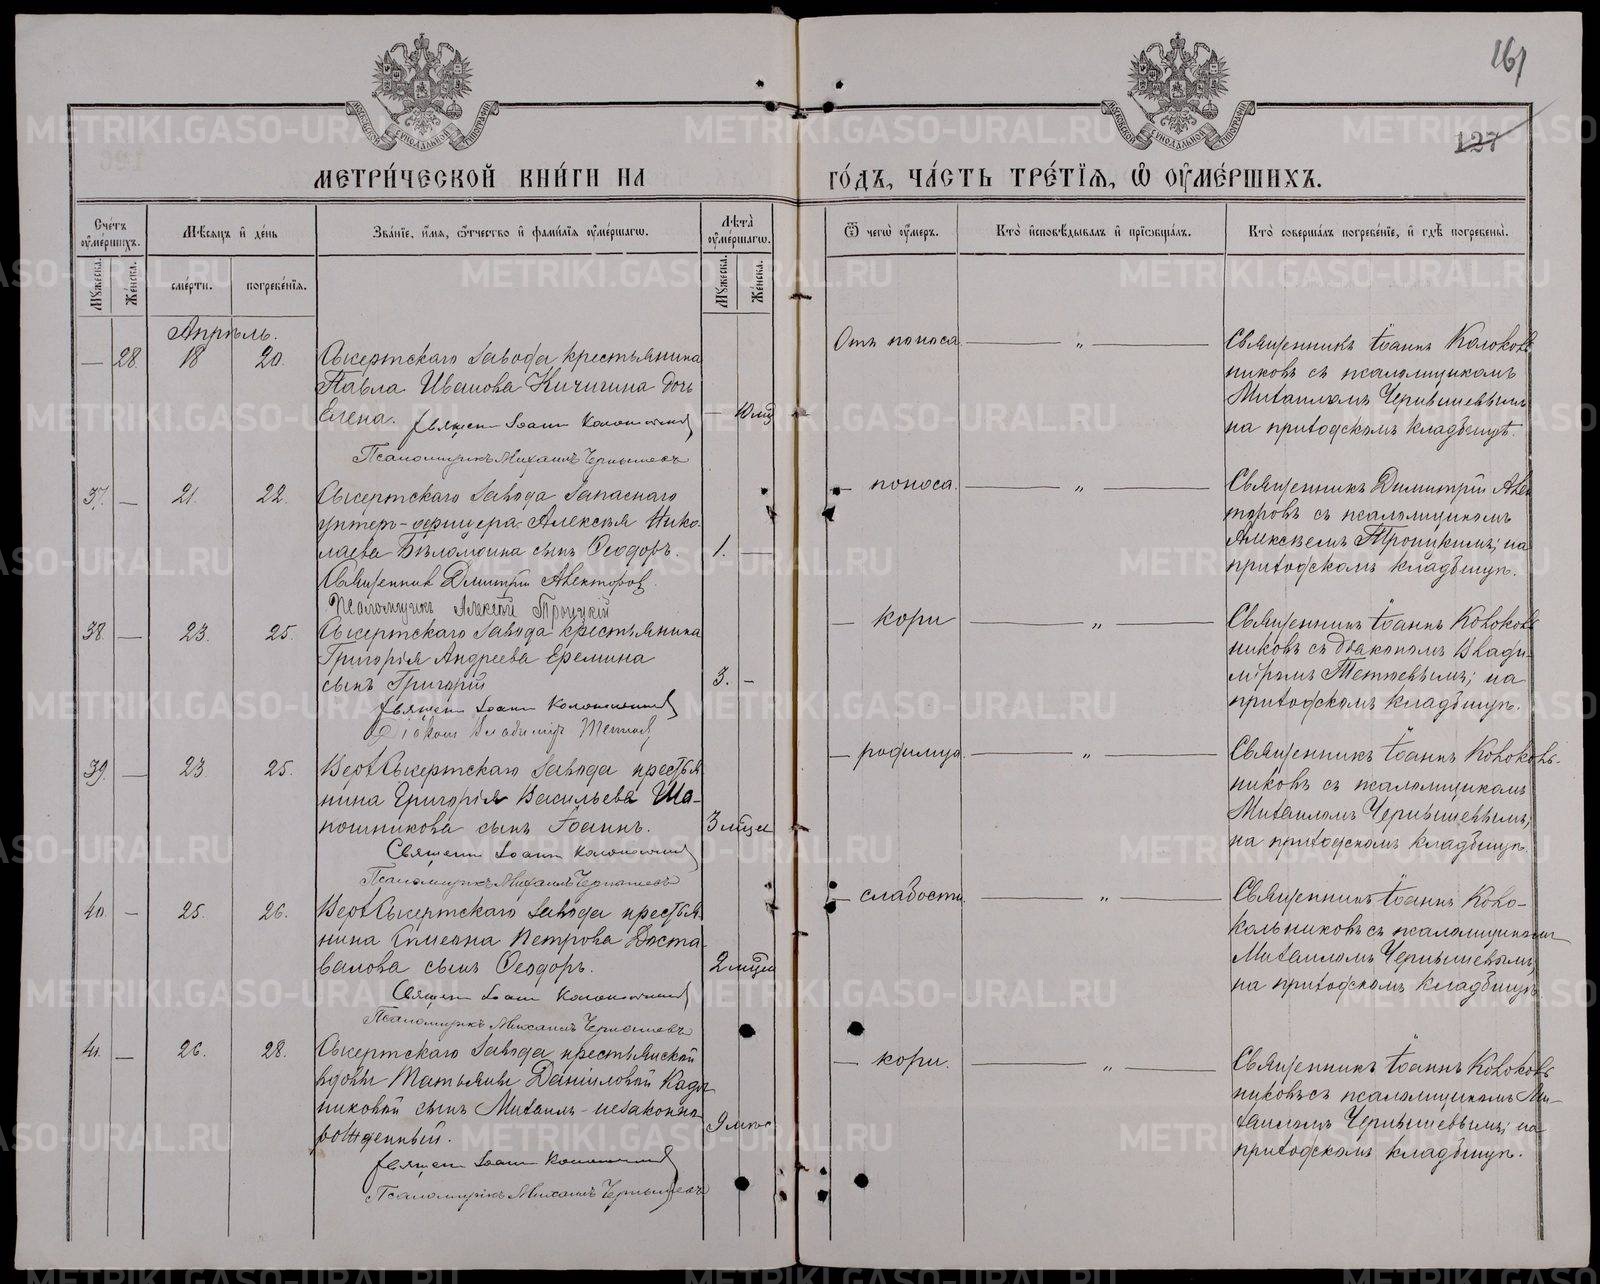 161
127
МЕТРИ́ЧЕСКОЙ КНИ́ГИ НА
ГО́ДЪ, ЧА́СТЬ ТРЕ́ТІЯ, Ѡ ОУМЕ́РШИХЪ.
Сче́тъ оуме́ршихъ.
Мѣ́сяцъ и де́нь
Зва́ніе, и́мя, о́тчество и фами́лія оуме́ршагѡ.
Лѣ́та оуме́ршагѡ.
Ѿ чегѡ̀ оу́меръ.
Кто̀ исповѣ́дывалъ и приѡбща́лъ.
Кто̀ соверша́лъ погребе́ніе, и гдѣ̀ погребены̀.
Му́жеска.
Же́нска.
сме́рти.
погребе́нія.
Му́жеска.
Же́нска.
Апрѣль.
— 28. 18 20. Сысертскаго завода крестьянина
Павла Иванова Кичигина дочь
Елена. — 10 мц
Священ Іоанн Колокольников
Псаломщикъ Михаилъ Чернышевъ
Отъ поноса — „ —
Священникъ Іоаннъ Колоколь
никовъ съ псаломщикомъ
Михаиломъ Чернышевымъ
на приходскомъ кладбищѣ.
37. — 21. 22. Сысертскаго завода запаснаго
унтеръ-офицера Алексѣя Нико-
лаева Бѣломоина сынъ Ѳеодоръ. 1. —
Священник Димитрій Авекторов
Псаломщикъ Алексѣй Троицкій
— поноса. — „ —
Священникъ Димитрій Авек
торовъ съ псаломщикомъ
Алексѣемъ Троицкимъ; на
приходскомъ кладбищѣ.
38. — 23. 25. Сысертскаго завода крестьянина
Григорія Андреева Еремина
сынъ Григорій 3. —
Священ Іоанн Колокольников
Діакон Владимир Тетюев
— кори — „ —
Священникъ Іоаннъ Колоколь
никовъ съ діакономъ Влади-
міромъ Тетюевымъ; на
приходскомъ кладбищѣ.
39. — 23 25. Верхсысертскаго завода крестья
нина Григорія Васильева Ша-
пошникова сынъ Іоаннъ. 3 мцсц
Священ Іоанн Колокольников
Псаломщикъ Михаилъ Чернышевъ
— родимца. — „ —
Священникъ Іоаннъ Колоколь-
никовъ съ псаломщикомъ
Михаиломъ Чернышевымъ;
на приходскомъ кладбищѣ.
40. — 25. 26. Верхсысертскаго завода крестья
нина Симеона Петрова Доста-
валова сынъ Ѳеодоръ. 2 мцсц
Священ Іоанн Колокольников
Псаломщикъ Михаилъ Чернышевъ
— слабости. — „ —
Священникъ Іоаннъ Коло-
кольниковъ съ псаломщикомъ
Михаиломъ Чернышевымъ;
на приходскомъ кладбищѣ.
41. — 26. 28. Сысертскаго завода крестьянской
вдовы Татьяны Даниловой Кадь
никовой сынъ Михаилъ - незаконно
рожденный. 9 мцс
Священ Іоанн Колокольников
Псаломщикъ Михаилъ Чернышевъ
— кори. — „ —
Священникъ Іоаннъ Колоколь
никовъ съ псаломщикомъ Ми-
хаиломъ Чернышевымъ; на
приходскомъ кладбищѣ.
METRIKI.GASO-URAL.RU